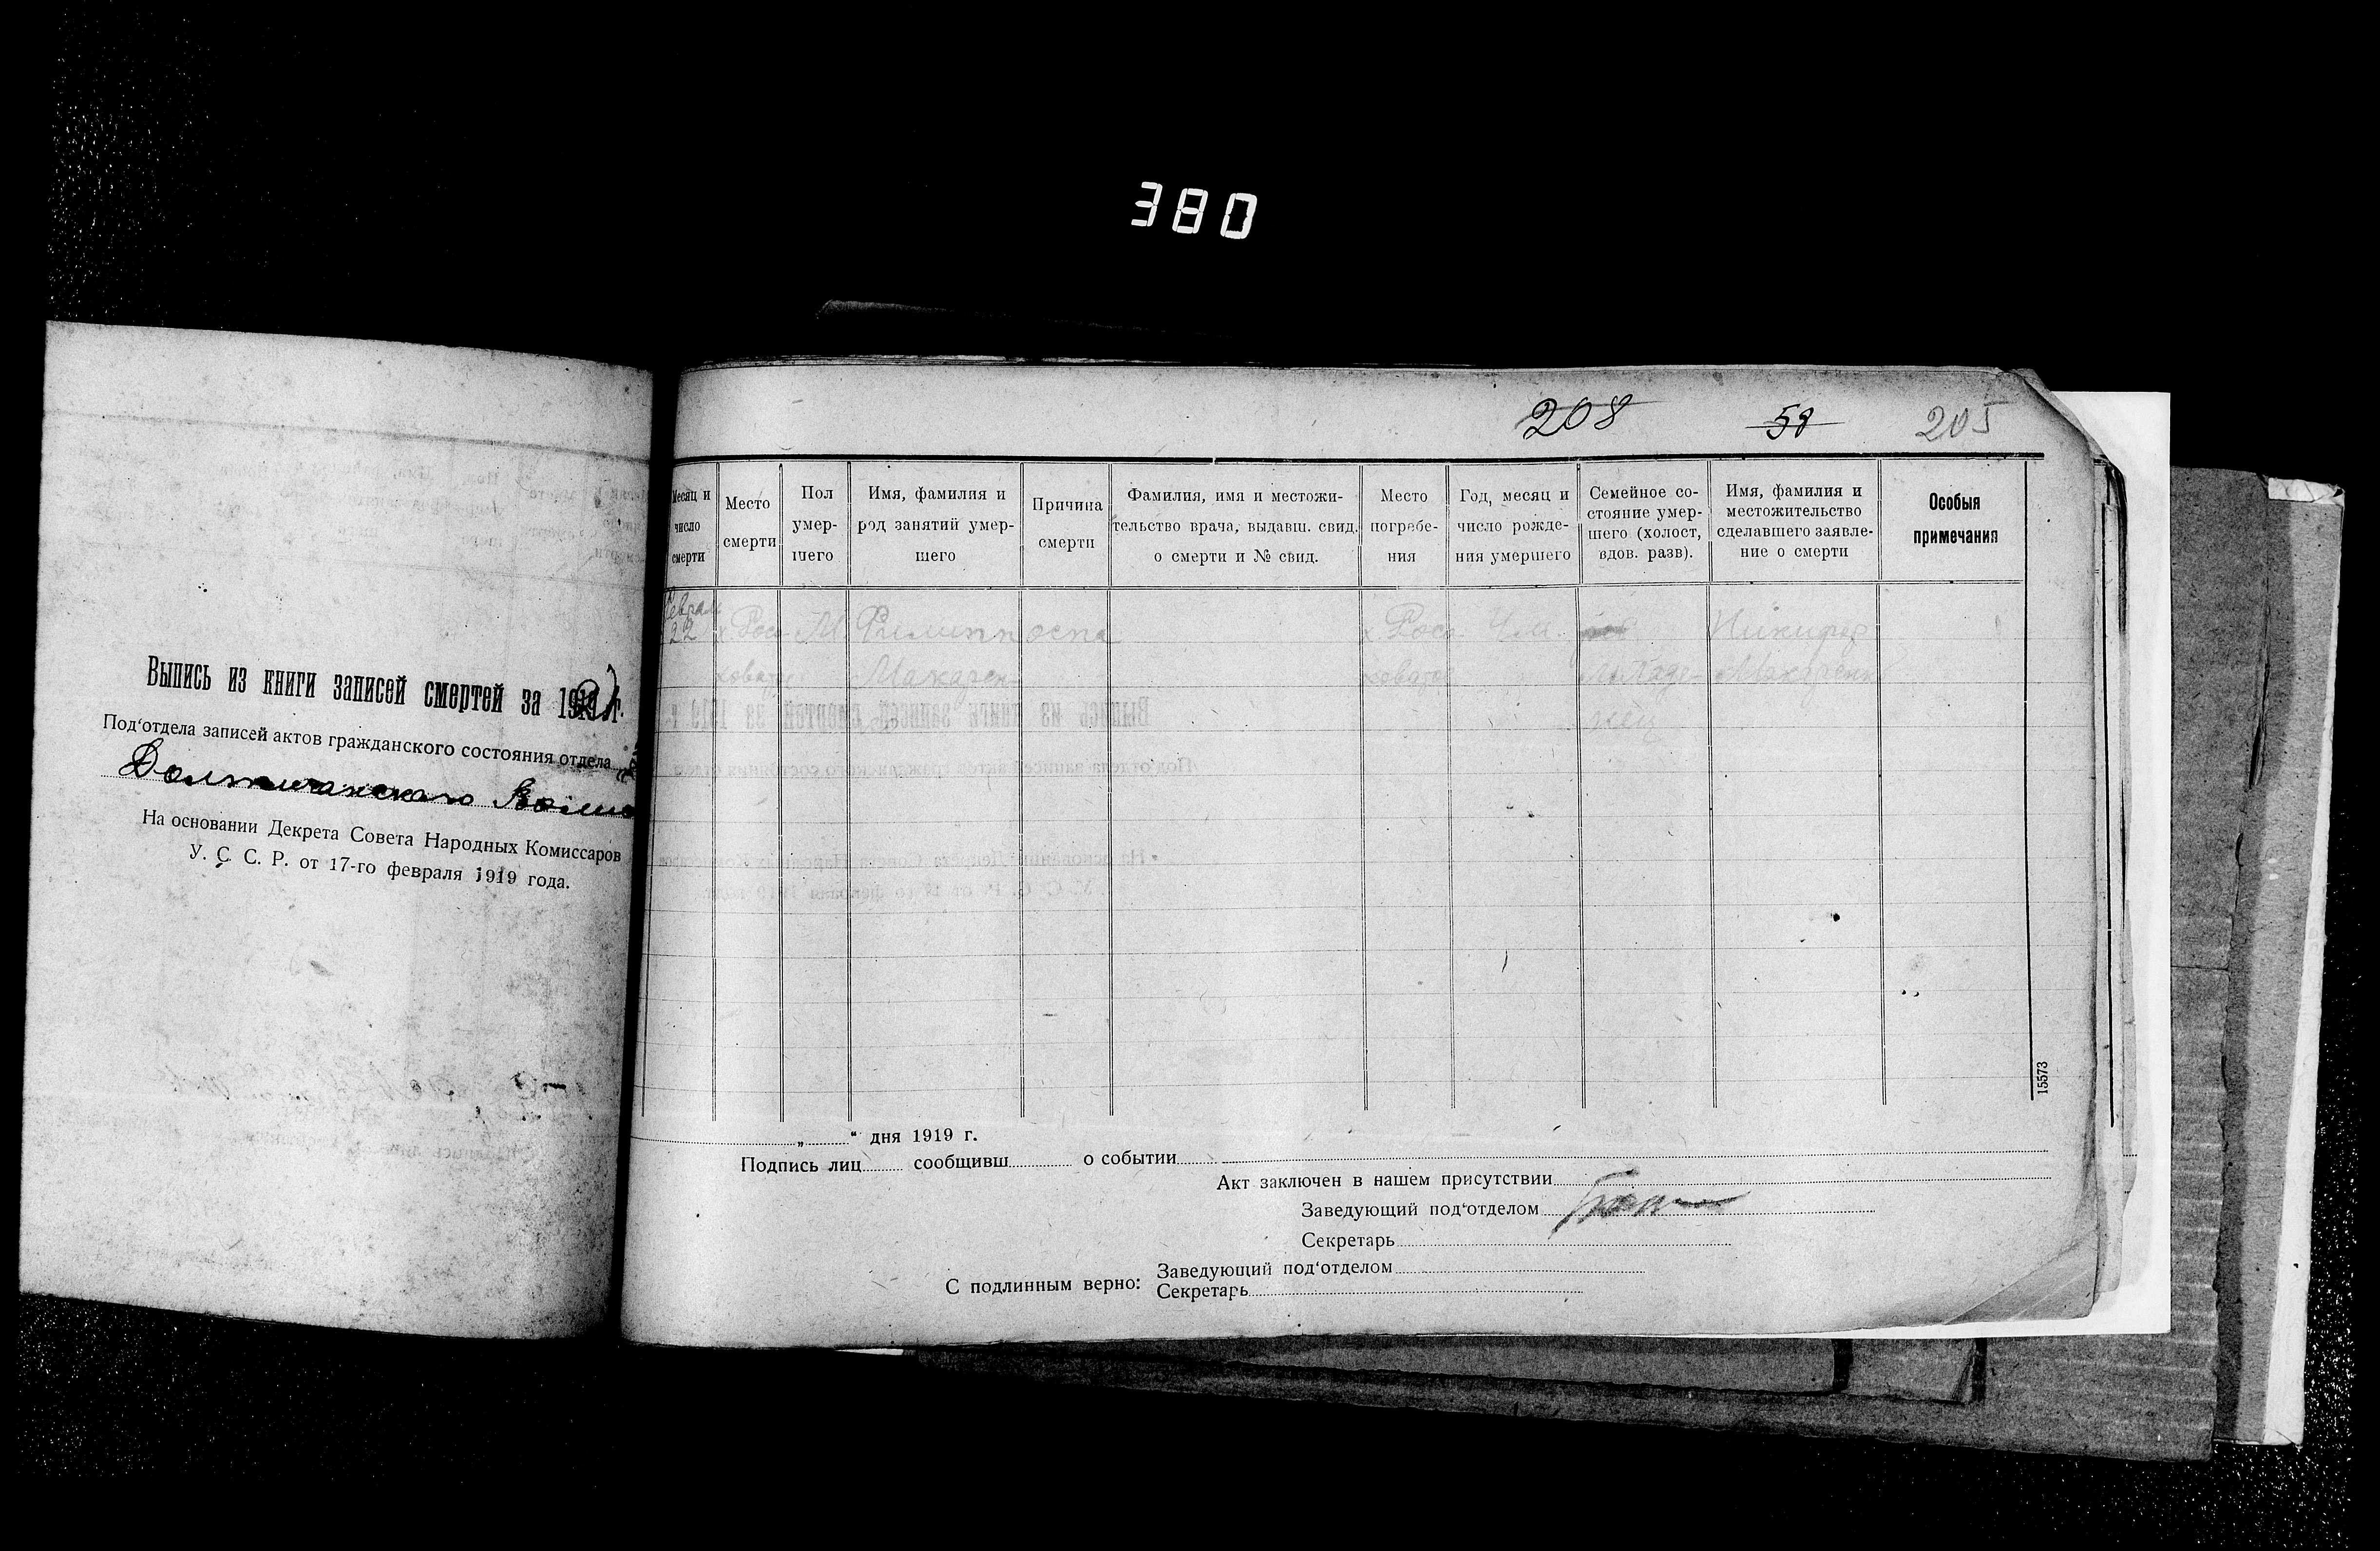 380
Выпись из книги записей смертей за 1919 г.
Под‘отдела записей актов гражданского состояния отдела
На основании Декрета Совета Народных Комиссаров
У. С. С. Р. от 17-го февраля 1919 года.
208 58 205
Месяц и число смерти
Место смерти
Пол умер-шего
Имя, фамилия и род занятий умер-шего
Причина смерти
Фамилия, имя и местожи-тельство врача, выдавш. свид. о смерти и № свид.
Место погребе-ния
Год, месяц и число рожде-ния умершего
Семейное со-стояние умер-шего (холост, вдов. разв).
Имя, фамилия и местожительство сделавшего заявле-ние о смерти
Особыя примечания
22 х. Росо- М. Филипп оспа х. Росо- 4 м. Никифор
ховатое Макарен- ховатое младе- Макаренк
нец
15573
„ “ дня 1919 г.
Подпись лиц сообщивш о событии
Акт заключен в нашем присутствии
Заведующий под‘отделом
Секретарь
С подлинным верно: Заведующий под‘отделом
Секретарь